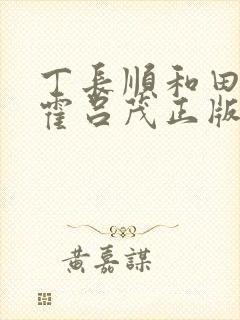 丁長順和田
霍呂茂正版
黃嘉謀